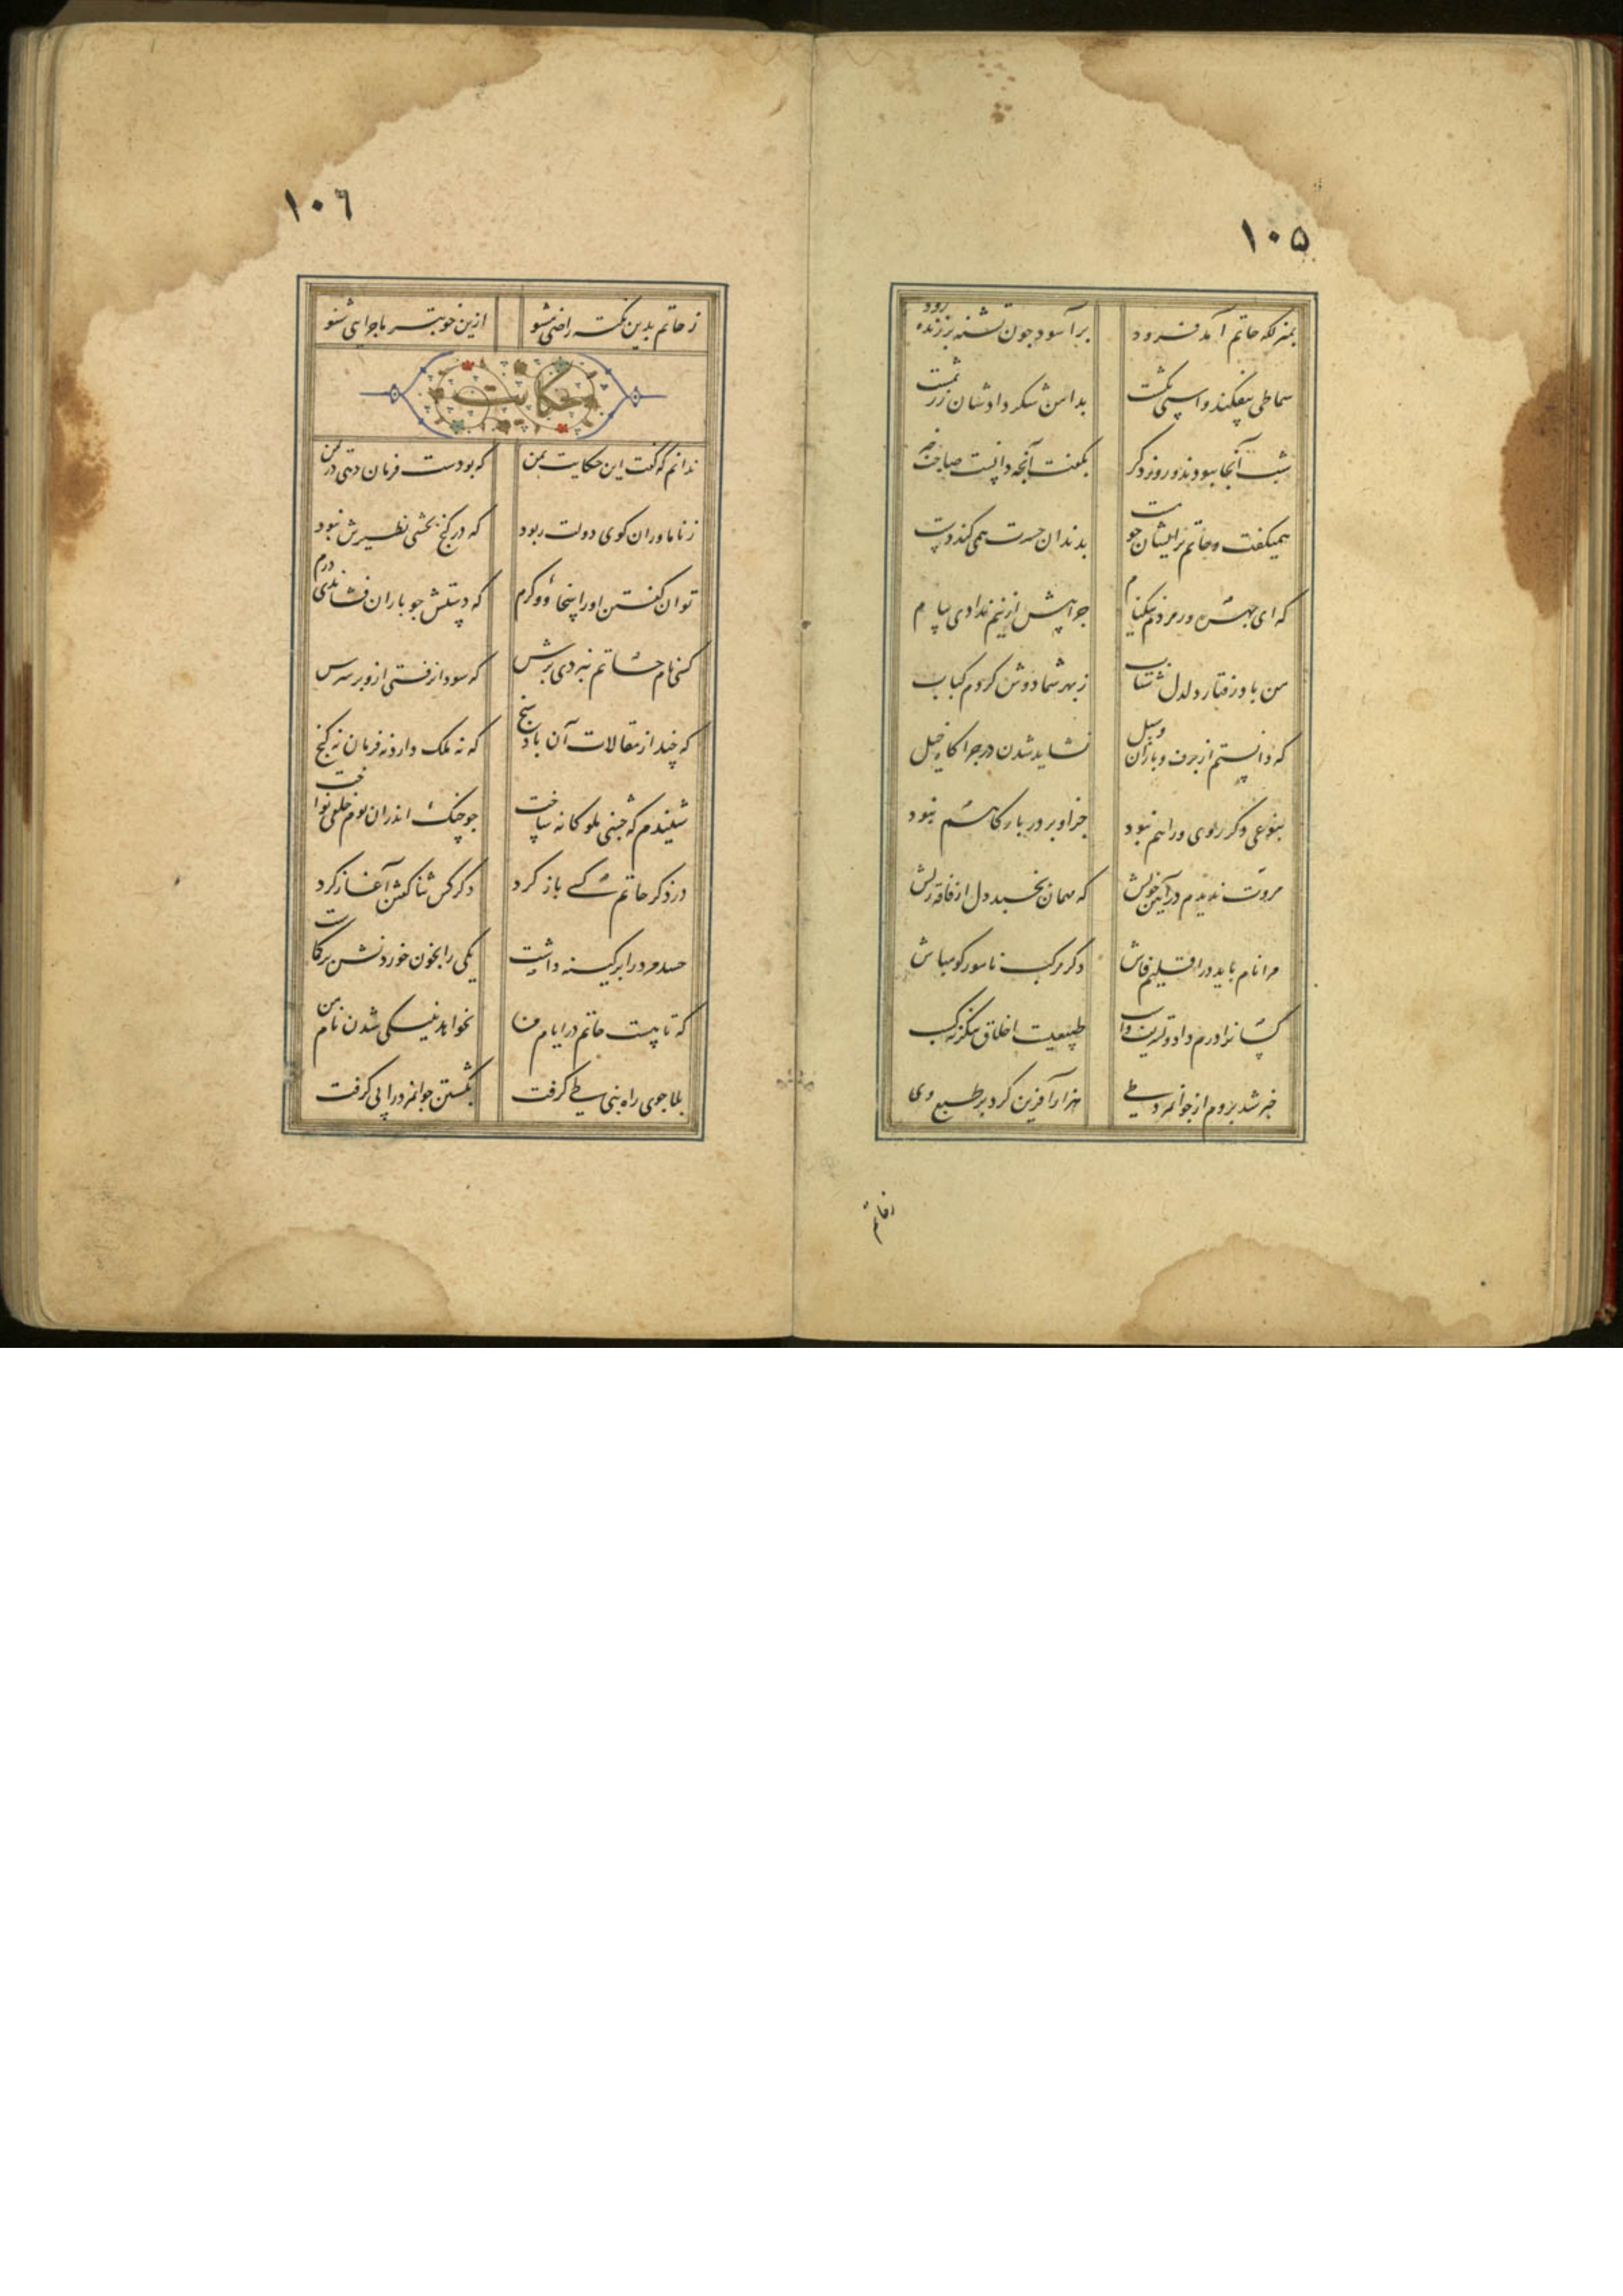 ١٠٥
بمنزلگه حاتم آمد فرود برآسود چون تشنه بر زنده رود
سماطی بیفکند و اسبی بکشت بدامن شکر دادشان زر بمشت
شب آنجا ببودند و روز دکر بکفت آنچه دانست صاحب خبر
همیکفت و حاتم پریشان چو مست بدندان حسرت همی کند دست
که ای بهره‌ور مرد نیکنام چرا پیش ازینم ندادی پیام
من باد رفتار دلدل شتاب ز بهر شما دوش کردم کباب
که دانستم از برف و باران و سیل نشاید شدن در چراگاه خیل
بنوعی دکر روی و راهم نبود جز او بر در بارکاهم نبود
مروت ندیدم در آیین خویش که مهمان بخسبد دل از فاقه ریش
مرا نام باید در اقلیم فاش دکر مرکب نامور کو مباش
کسانرا درم داد و تشریف و اسب طبیعیت اخلاق نیکو نه کسب
خبر شد بروم از جوانمرد طی هزار آفرین کرد بر طبع وی
ز حاتم
١٠٦
ز حاتم بدین نکته راضی مشو ازین خوبتر ماجرایی شنو
حکایت
ندانم که کفت این حکایت بمن که بودست فرمان دهی در یمن
ز نام‌اوران کوی دولت ربود که در کنج بخشی نظیرش نبود
توان کفتن اورا سخا و کرم که دستش چو باران فشاندی درم
کسی نام حاتم نبردی برش که سودا نرفتی ازو بر سرش
که چند از مقالات آن باد سنج که نه ملک دارد نه فرمان نه کنج
شنیدم که جشنی ملوکانه ساخت چو چنک اندران بزم خلقی نواخت
در ذکر حاتم کسی باز کرد دکر کس ثنا کفتن آغاز کرد
حسد مرد را بر کینه داشت یکی را بخون خوردنش بر کاشت
که تا هست حاتم در ایام من نخواهد بنیکی شدن نام من
بلا جوی راه بنی طی کرفت بکشتن جوانمرد را پی کرفت